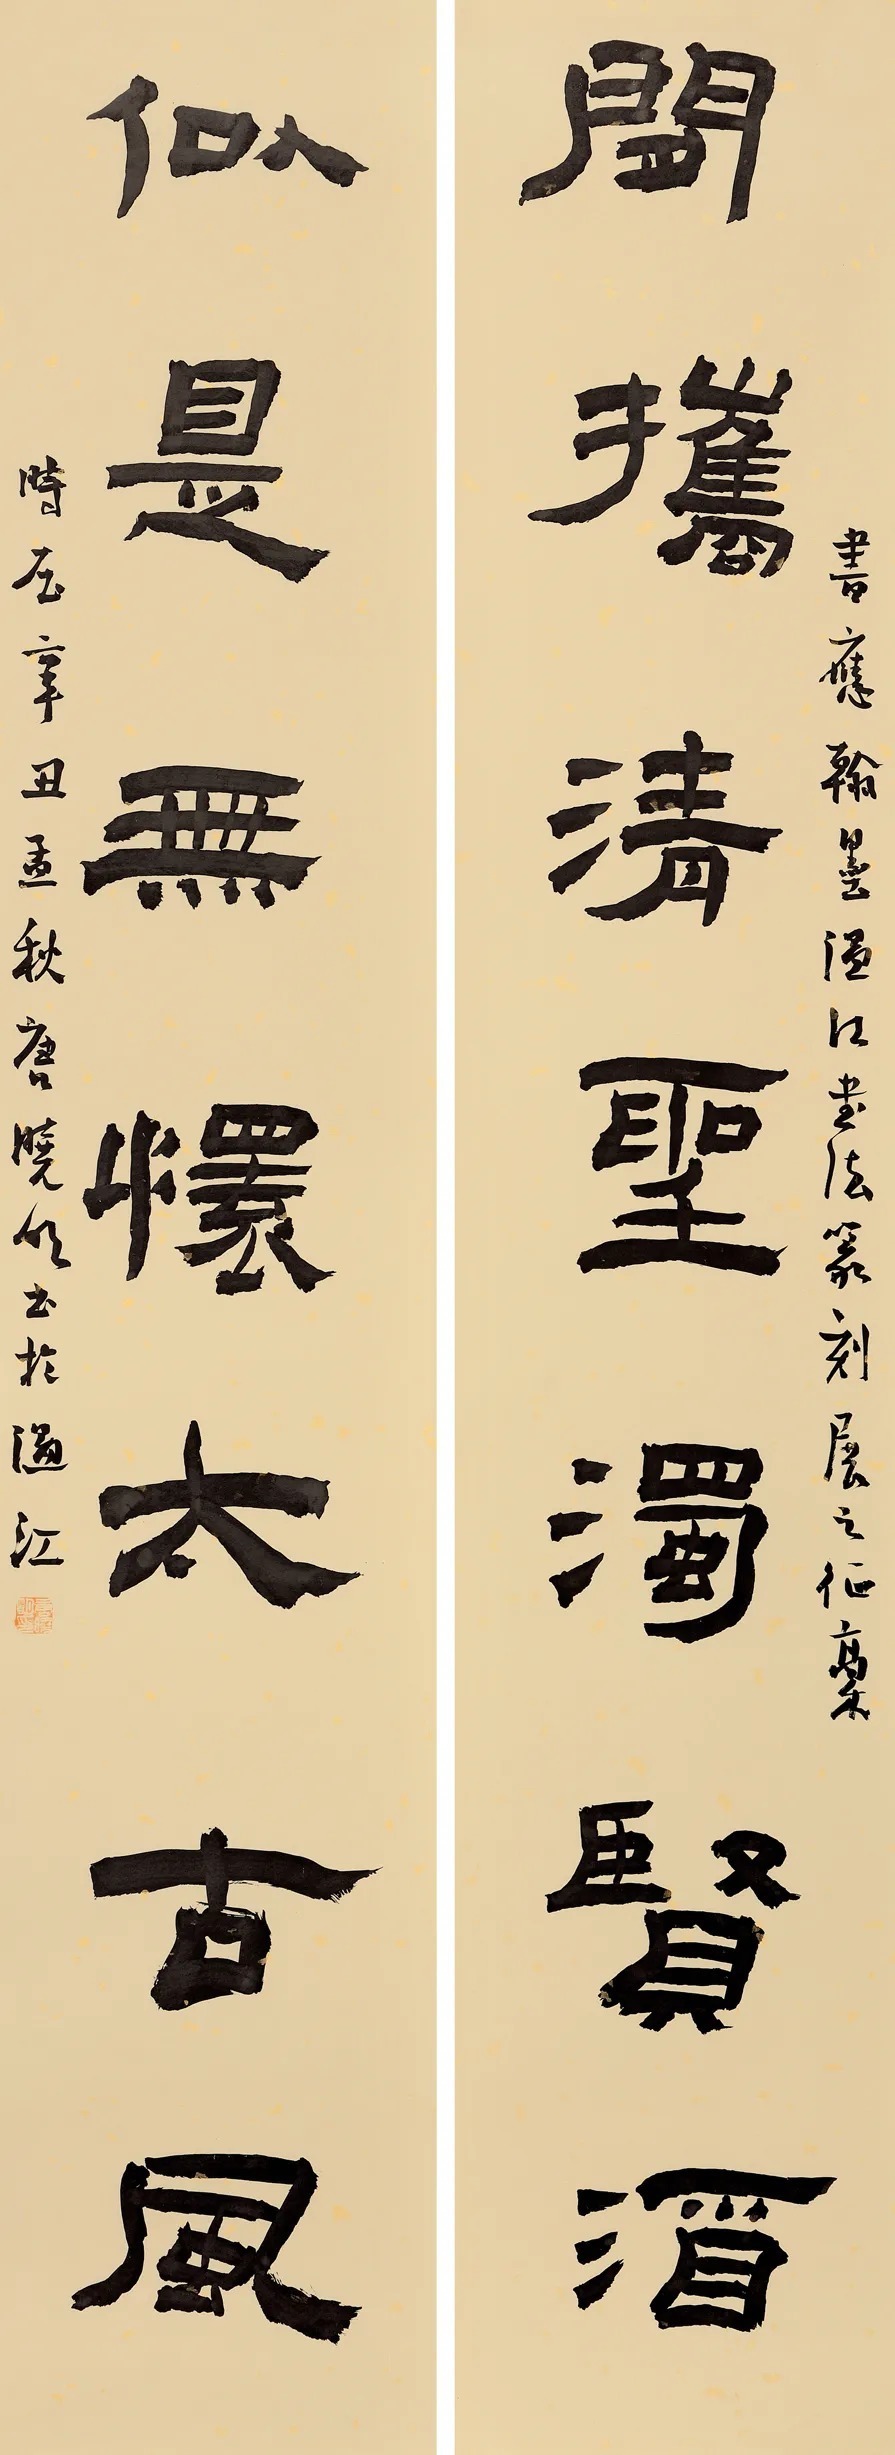 書應翰墨溫江書法篆刻展之征稾
閒攜清聖濁賢酒
似是無懷太古風
時在辛丑孟秋唐曉書於溫江